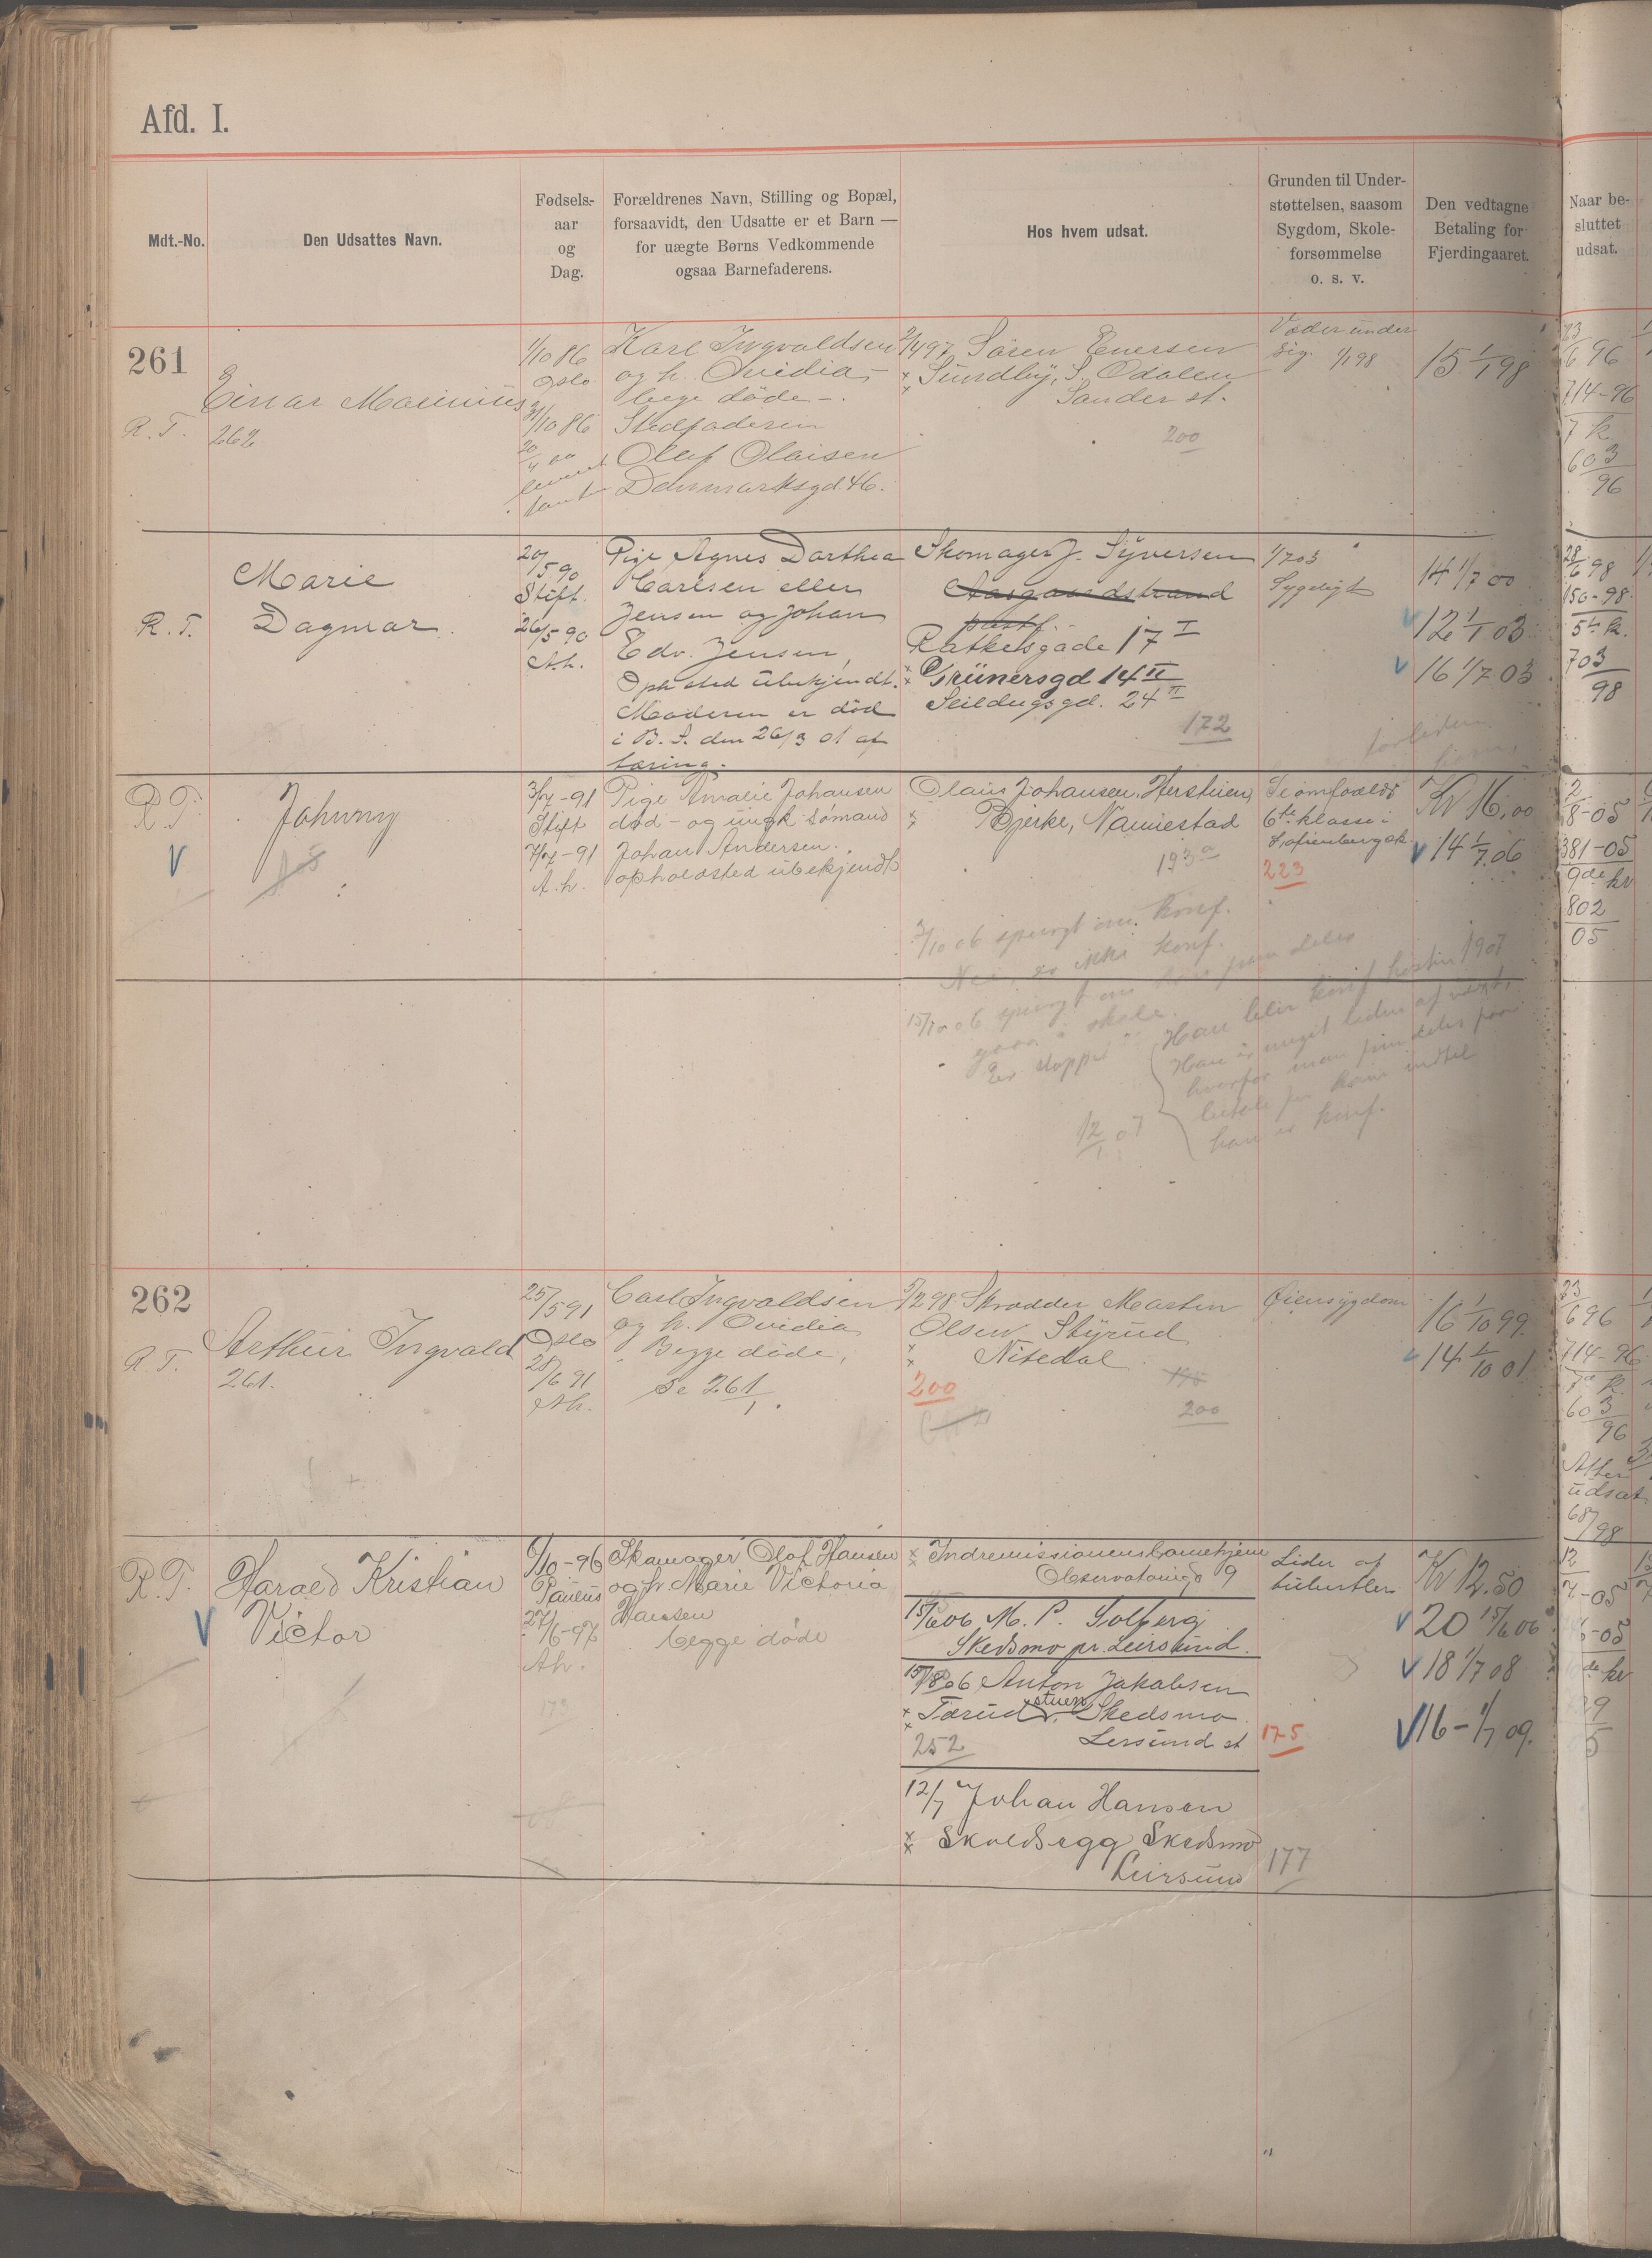 Afd. I.
Mdt.-No.
Den Udsattes Navn.
Fødsels-
aar
og
Dag.
Forældrenes Navn, Stilling og Bopæl,
forsaavidt, den Udsatte er et Barn —
for uægte Børns Vedkommende
ogsaa Barnefaderens.
Hos hvem udsat.
Grunden til Under-
støttelsen, saasom
Sygdom, Skole-
forsømmelse
o. s. v.
Den vedtagne
Betaling for
Fjerdingaaret.
Naar be-
sluttet
udsat.
261
R. T.
Einar Marinius
262
1/10 86
Oslo
31/10 86
Karl Ingvaldsen
og h. Ovidia,
bege döde -.
Stedfaderen
Olaf Olaisen
Denmarksgd. 46.
Sören Enersen
Sundby, S. Odalen
Sander st.
200
1/1 98
15 1/1 98
23/6 96
714-96
7 k
603/96
R. T.
Marie
Dagmar
20/5 90
Stift.
26/5 90
A.h.
Pige Agnes Dorthea
Carlsen eller
Jensen og Johan
Edv. Jensen,
Oph sted ubekjendt.
Moderen er död
i B. S. den 26/3 01 af
tæring.
Skomager J. Syversen
Aasgaardstrand
Ratkesgade 17 I
Grünersgd 14 II
Seildugsgd. 24 II
172
1/7 03
Sygeligt
14 1/7 00
12 1/1 03
16 1/7 03
28/6 98
150-98
5te k.
703/98
R. T.
Johnny
Stift
A. h.
Pige Amalie Johansen
död - og ungk. sømand
Johan Andersen.
opholdsted ubekjendt
Olaus Johansen,
Bjerke, Nannestad
193a
6te klasse i
Sofienberg sk.
223
Kr 16,00
14 1/7 06
2/8-05
381-05
9de kr
802/05
7/10 06 spurgt om konf.
Nei, er ikke konf.
15/10 06 spurgt om han fremdeles
gaar i skole.
Er stoppet
12/1 07
Han blir konf høsten 1907
Han er meget liden af vækst,
hvorfor man fremdeles faar
betale for ham indtil
han er konf.
262
R. T.
Arthur Ingvald
261.
25/5 91
Oslo
28/6 91
Ah.
Carl Ingvaldsen
og h. Ovidia
Begge döde,
Se 261/1.
5/2 98 Skrædder Martin
Olsen Styrud
Nitedal
200
200
Øiensygdom
16 1/10 99.
14 1/10 01
23/6 96
714-96
7de k
603/96
Atter
udsat
687/98
R. T.
Harald Kristian
Victor
6/10-96
Paulus
27/6-97
Ah.
Skomager Olaf Hansen
og h Marie Victoria
Hansen
begge döde
Indremissionens barnehjem
Observatoriegd 9
15/6 06 M. P. Solberg
Skedsmo pr. Leirsund.
15/8 06 Anton Jakobsen
Tærudstuen, Skedsmo
Lersund st
252
12/7 Johan Hansen
Skoldbegg Skedsmo
Leirsund
Lider af
tuberkler
175
177
Kr 12.50
20 15/6 06
18 1/7 08
16 - 1/7 09.
12/7-05